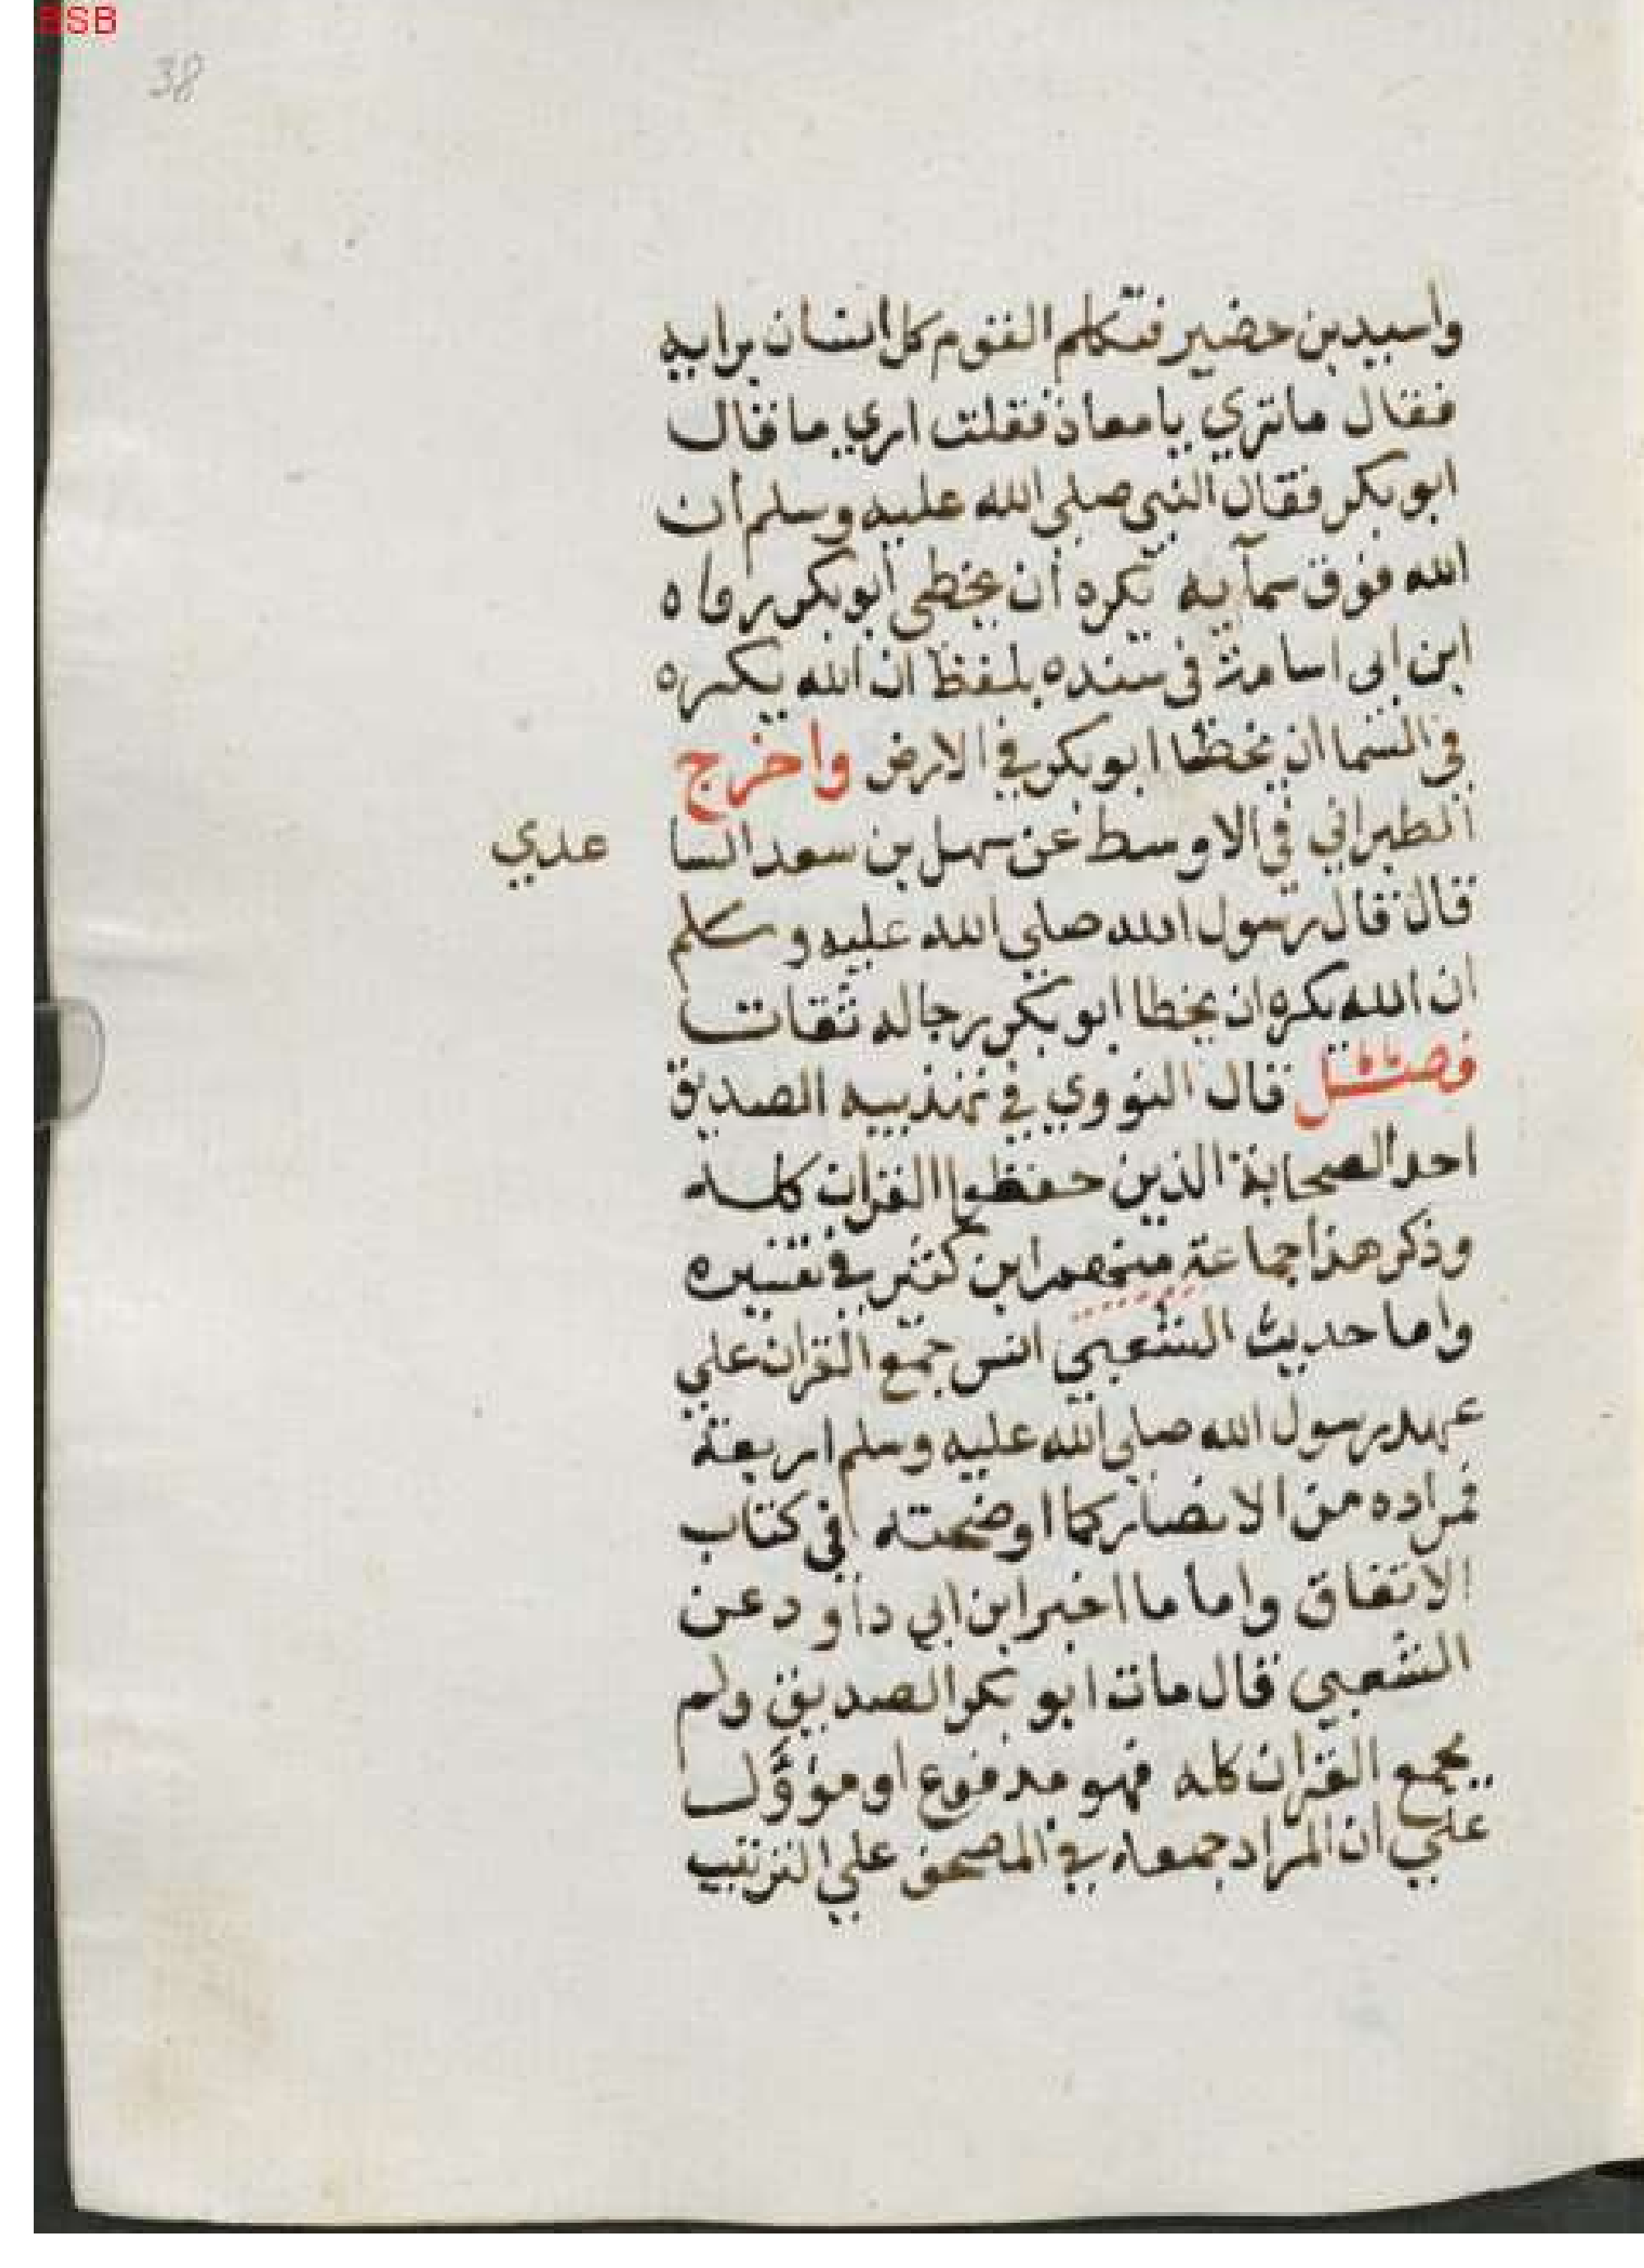 BSB
38
واسيد بن حضير فتكلم القوم كل انسان برايه
فقال ماتري يامعاذ فقلت اري ما قال
ابو بكر فقال النبي صلي الله عليه وسلم ان
الله فوق سمآيه يكره ان يخطي ابو بكر رواه
ابن ابي اسامة في سنده بلفظ ان الله يكره
في السما ان يخطا ابو بكر في الارض واخرج
الطبراني في الاوسط عن سهل بن سعد السا عدي
قال قال رسول الله صلي الله عليه وسلم
ان الله يكره ان يخطا ابو بكر رجاله ثقات
فصل قال النووي في تهذيبه الصديق
احد الصحابة الذين حفظوا القران كله
وذكر هذا جماعة منهم ابن كثير في تفسيره
واما حديث الشعبي انس جمع القران علي
عهد رسول الله صلي الله عليه وسلم اربعة
فمراده من الانصار كما اوضحته في كتاب
الاتفاق واما ما اخبر ابن ابي داوود عن
الشعبي قال مات ابو بكر الصديق ولم
يجمع القران كله فهو مدفوع او مؤوّل
علي ان المراد جمعه في المصحف علي الترتيب